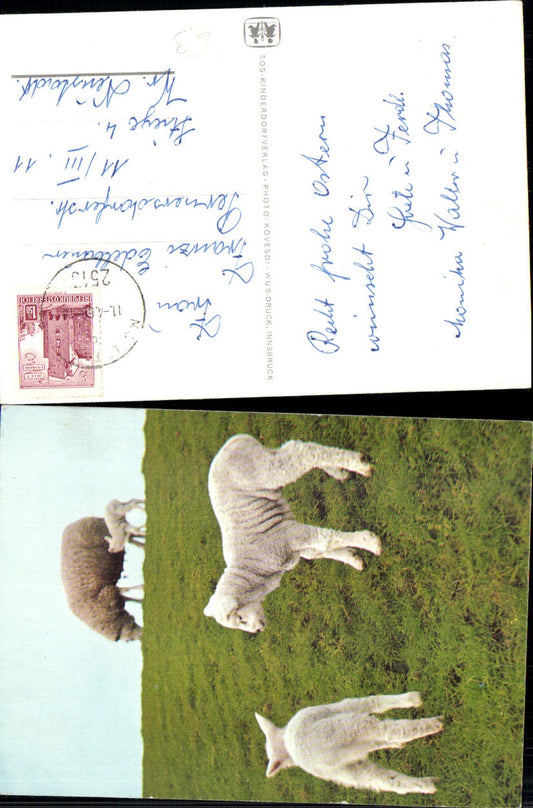 Recht frohe Ostern
wünscht Dir
Gretl u. Ferdl.
Monika Walter u. Thomas
SOS-KINDERDORFVERLAG · PHOTO KÖVESDI · WUB-DRUCK, INNSBRUCK
Frau
Edelbauer
11/III. 11
Stiege 4.
Wr. Neustadt
REPUBLIK ÖSTERREICH
2513